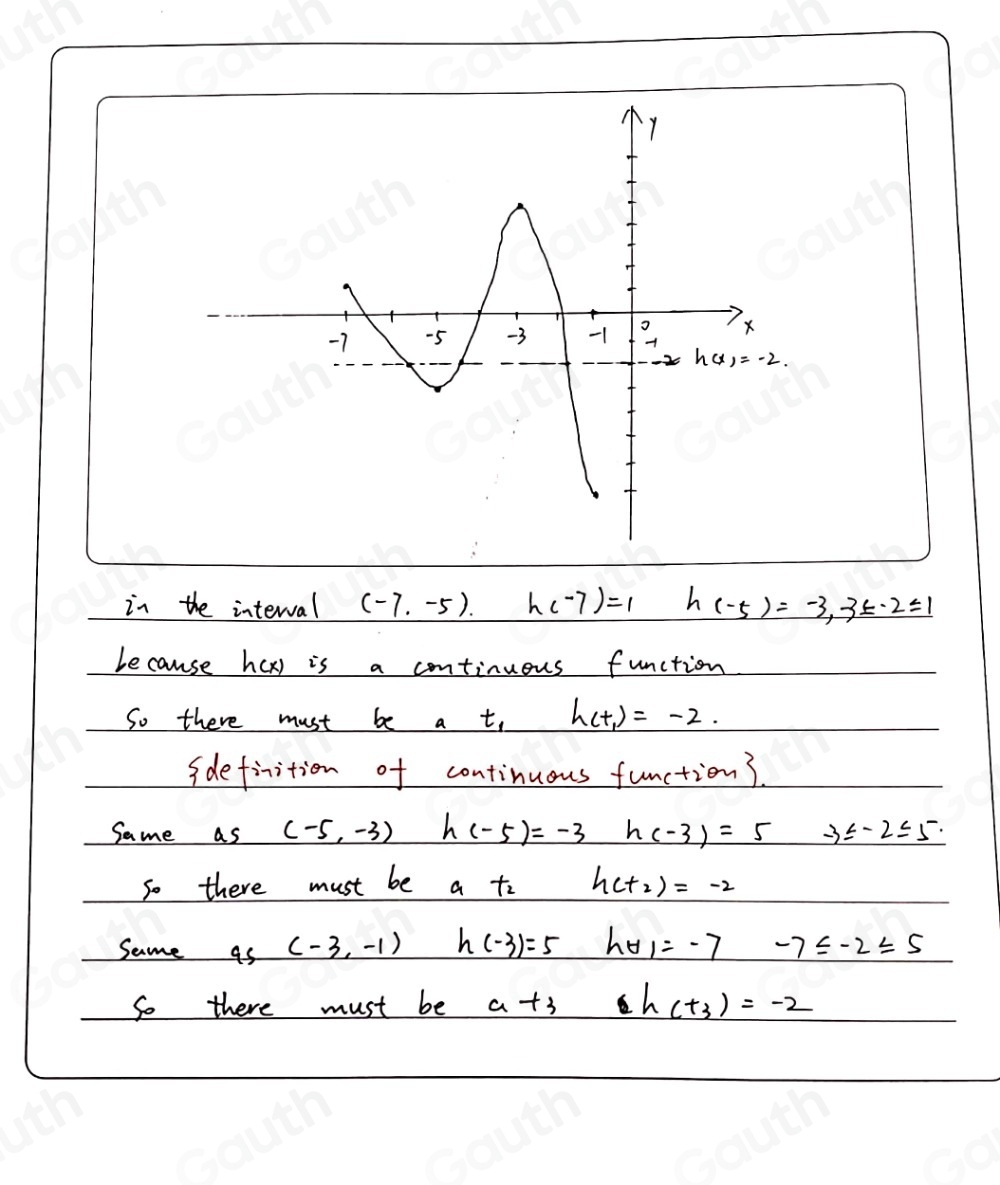 y
-7
-5
-3
-1
0
x
-1
-2 h(x)=-2.
in the interval (-7. -5). h(-7)=1 h(-5)= -3, -3≤-2≤1
because h(x) is a continuous function
So there must be a t₁ h(t₁)= -2.
{definition of continuous function}.
Same as (-5, -3) h(-5)= -3 h(-3) = 5 -3≤-2≤5.
So there must be a t₂ h(t₂)= -2
Same as (-3, -1) h(-3)=5 h(-1)= -7 -7≤-2≤5
So there must be a t₃ h(t₃) = -2
Gauth